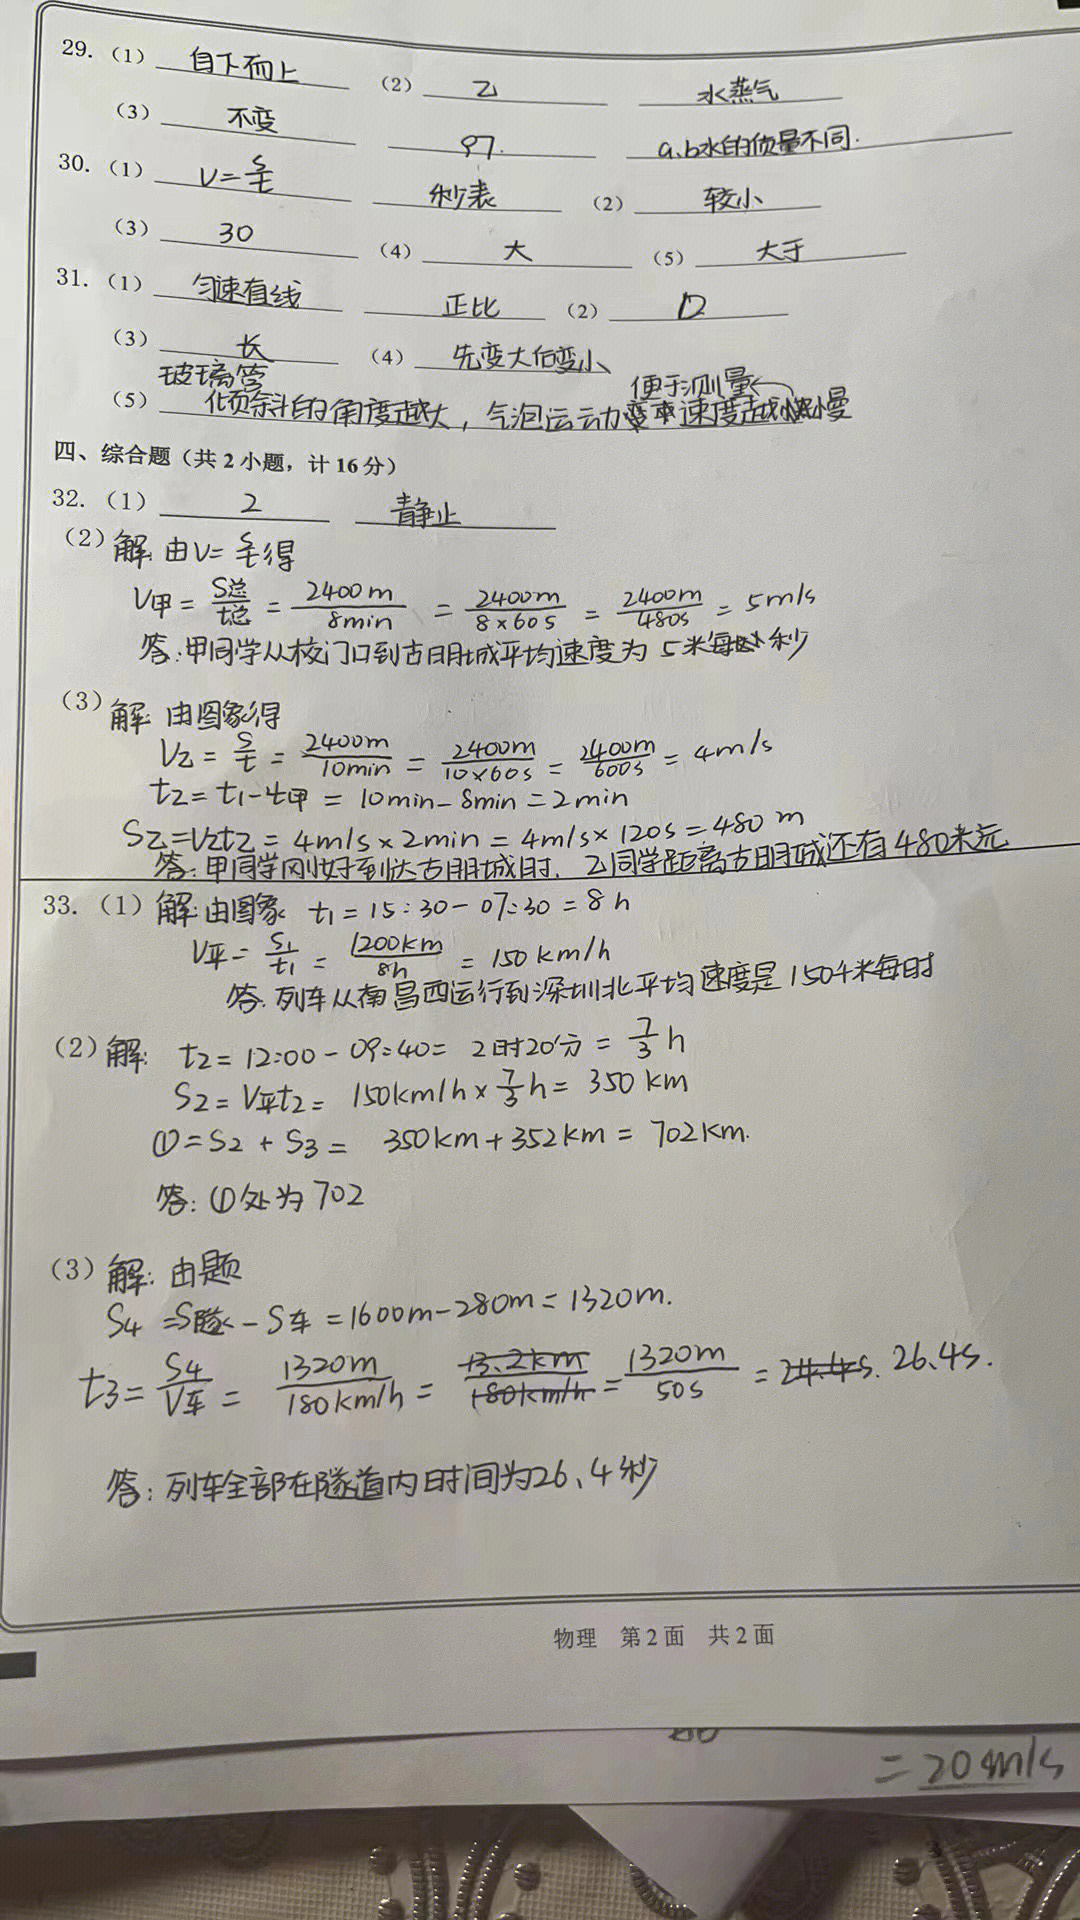 29. (1) 自下而上 (2) 乙 水蒸气
(3) 不变 97. a、b水的质量不同.
30. (1) V=S/t 秒表 (2) 较小
(3) 30 (4) 大 (5) 大于
31. (1) 匀速直线 正比 (2) D
(3) 长 (4) 先变大后变小
玻璃管 便于测量
(5) 倾斜的角度越大，气泡运动 速度越 慢
四、综合题（共 2 小题，计 16 分）
32. (1) 2 静止
(2) 解: 由V=S/t得
V甲=S总/t总=2400m/8min=2400m/8×60s=2400m/480s=5m/s
答:甲同学从校门口到古明城平均速度为5米每秒
(3) 解: 由图象得
V乙=S/t=2400m/10min=2400m/10×60s=2400m/600s=4m/s
t2=t1-t甲=10min-8min=2min
S2=V2t2=4m/s×2min=4m/s×120s=480m
答:甲同学刚好到达古明城时，乙同学距离古明城还有480米远
33. (1) 解:由图象 t1=15:30-07:30=8h
V平=S1/t1=1200km/8h=150km/h
答:列车从南昌西运行到深圳北平均速度是150千米每时
(2) 解: t2=12:00-09:40=2时20分=7/3h
S2=V平t2=150km/h×7/3h=350km
①=S2+S3=350km+352km=702km.
答:①处为702
(3) 解:由题
S4=S隧-S车=1600m-280m=1320m.
t3=S4/V车=1320m/180km/h=13.2km/180km/h=1320m/50s=24.4s. 26.4s.
答:列车全部在隧道内时间为26.4秒
物理 第2面 共2面
=20m/s